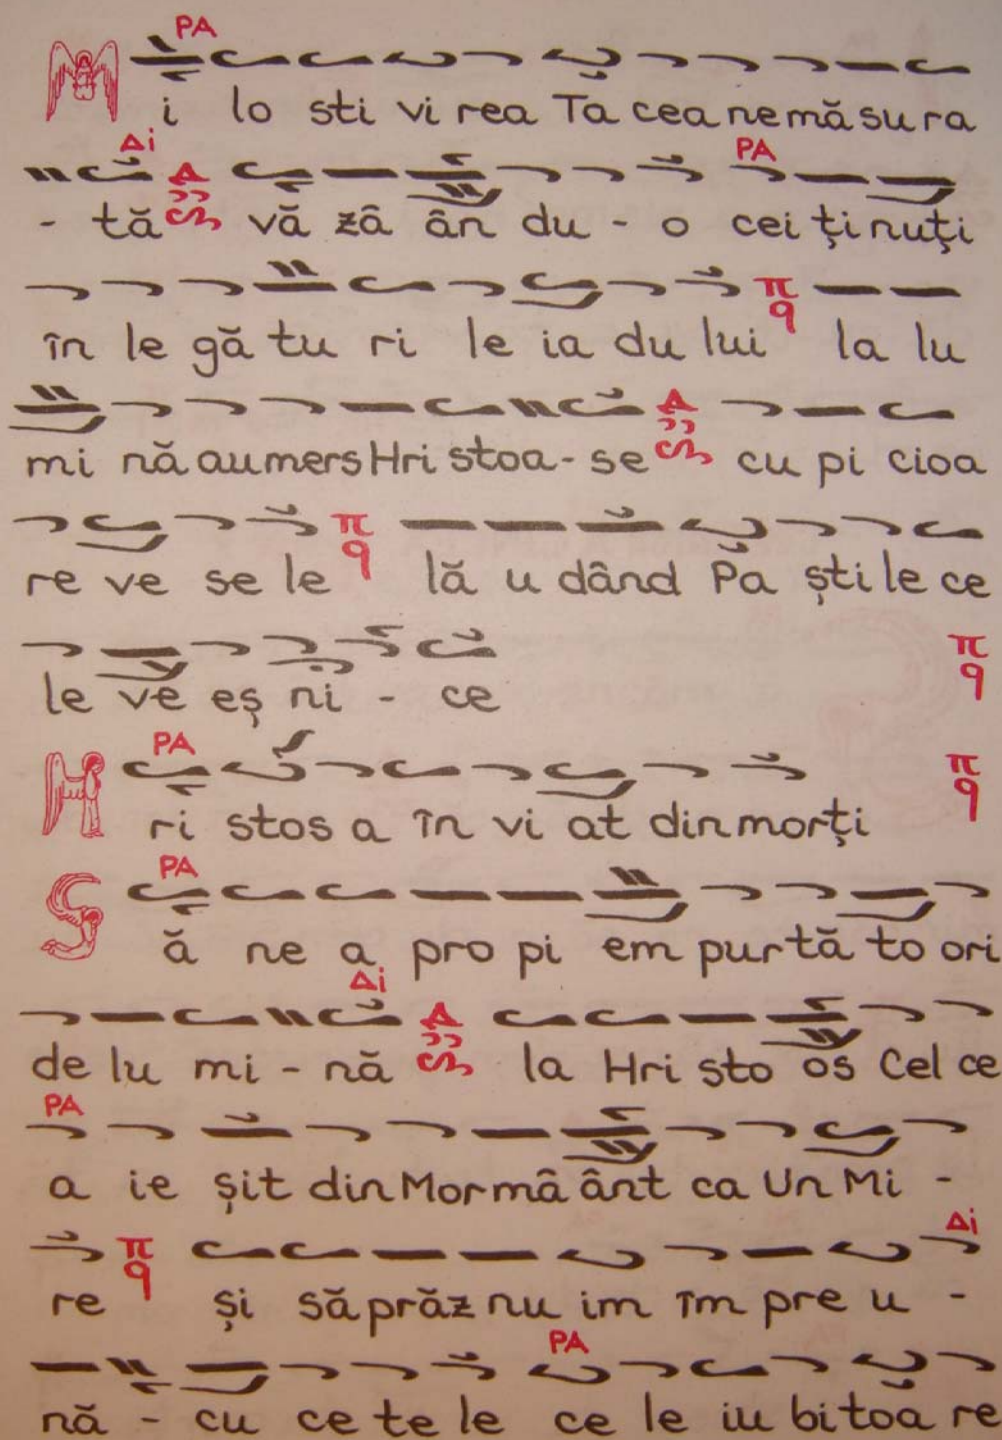 PA
Mi lo sti vi rea Ta cea ne mă su ra
Δi
- tă vă zâ ân du - o cei ți nuți
PA
în le gă tu ri le ia du lui π q la lu
mi nă au mers Hri stoa - se cu pi cioa
re ve se le π q lă u dând Pa ști le ce
le ve eș ni - ce π q
PA
Hri stos a în vi at din morți π q
PA
Să ne a pro pi em pur tă to ori
Δi
de lu mi - nă la Hri sto os Cel ce
PA
a ie șit din Mor mâ ânt ca Un Mi -
re π q și să prăz nu im îm pre u -
Δi
PA
nă - cu ce te le ce le iu bi toa re